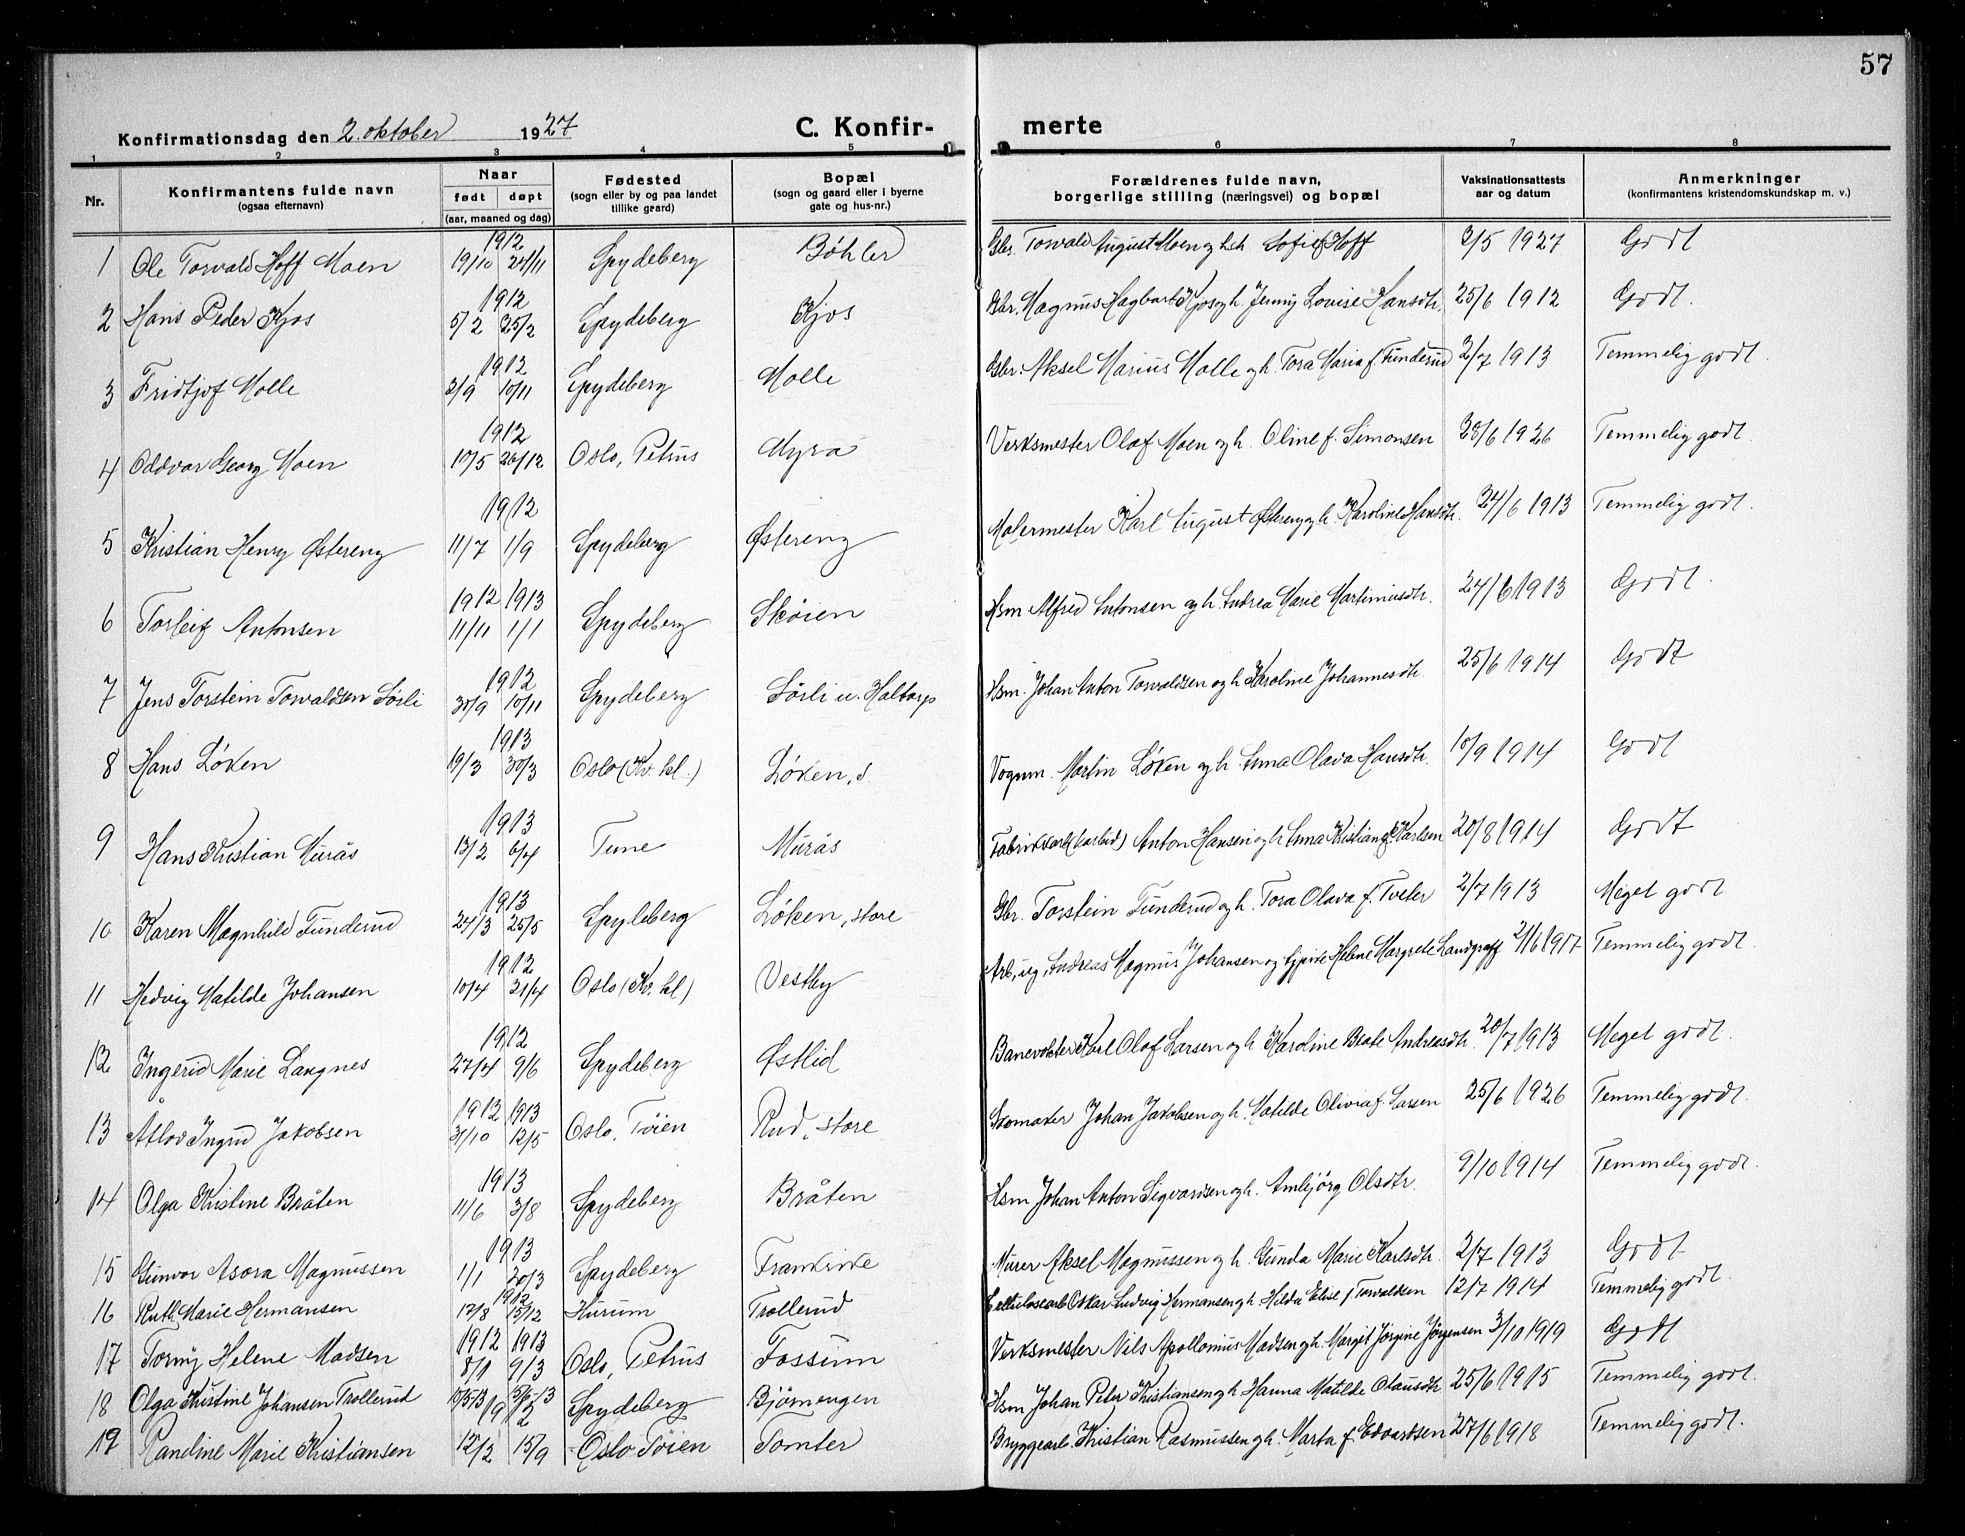 57
Konfirmationsdag den 2. oktober 1927 C. Konfir- merte
1 2 3 4 5 6 7 8
Nr. Konfirmantens fulde navn (ogsaa efternavn) Naar født døpt (aar, maaned og dag) Fødested (sogn eller by og paa landet tillike grard) Bopæl (sogn og gaard eller i byerne gate og hus-nr.) Forældrenes fulde navn, borgerlige stilling (næringsvei) og bopæl Vaksinationsattests aar og datum Anmerkninger (konfirmantens kristendomskundskap m. v.)
1 Ole Torvald Hoff Moen 1912 19/10 24/11 Spydeberg Bøhler Gbr. Torvald August Moen og h. Sofie f. Hoff 2/5 1927 Godt
2 Hans Peder Kjos 1912 5/2 25/2 Spydeberg Kjos Gbr. Magnus Hagbart Kjos og h. Jenny Lovise Hansdtr. 25/6 1912 Godt.
3 Fridtjof Molle 1912 2/9 10/11 Spydeberg Molle Gbr. Aksel Marius Molle og h. Tora Maria f. Funderud 2/7 1913 Temmelig godt.
4 Oddvar Georg Moen 1912 17/5 26/12 Oslo, Petrus Myra Verksmester Olaf Moen og h. Oline f. Simonsen 28/6 1926 Temmelig godt
5 Kristian Henry Østereng 1912 11/7 1/9 Spydeberg Østereng Malermester Karl August Østereng og h. Karoline Hansdtr. 24/6 1913 Temmelig godt.
6 Torleif Antonsen 1912 1913 11/11 1/1 Spydeberg Skøien Hsm Alfred Antonsen og h. Andrea Marie Martiniusdtr. 24/6 1913 Godt.
7 Jens Torstein Torvaldsen Sørli 1912 30/9 10/11 Spydeberg Sørli u. Haltorp Hsm. Johan Anton Torvaldsen og h. Karoline Johannesdtr 25/6 1914 Godt
8 Hans Løken 1913 19/3 30/3 Oslo (Kv. kl.) Løken, s. Vognm. Martin Løken og h. Anna Olava Hansdtr. 10/9 1914 Godt
9 Hans Kristian Murås 1913 13/2 6/4 Tune Murås Fabrikkarb (karbid) Anton Hansen og h. Anna Kristiane f. Karlsen 20/8 1914 Godt
10 Karen Magnhild Funderud 1913 24/3 25/5 Spydeberg Løken, store Gbr. Torstein Funderud og h. Tora Olava f. Tveter 2/7 1913 Meget godt
11 Hedvig Matilde Johansen 1912 10/4 21/4 Oslo (Kv. kl) Vestby Arb, ug, Andreas Magnus Johansen og pike Helene Margrete Landgraff 21/6 1917 Temmelig godt.
12 Ingerid Marie Langnes 1912 27/4 9/6 Spydeberg Østlid Banevokter Karl Olaf Larsen og h Karoline Beate Andreasdtr. 20/7 1913 Meget godt.
13 Åslov Ingrid Jakobsen 1912 1913 31/10 12/5 Oslo, Tøien Rud, store Skomaker Johan Jakobsen og h. Matilde Olivia f. Larsen 25/6 1926 Temmelig godt.
14 Olga Kristine Bråten 1913 11/6 3/8 Spydeberg Bråten Hsm Johan Anton Sigvardsen og h. Annbjørg Olsdtr. 9/10 1914 Temmelig godt.
15 Gunvor Asora Magnussen 1913 1/1 20/3 Spydeberg Frankrike Murer Aksel Magnussen og h. Gunda Marie Karlsdtr. 2/7 1913 Godt
16 Ruth Marie Hermansen 1912 17/8 15/12 Hurum Trollerud Cellulosearb Oskar Ludvig Hermansen og h. Hilda Elise f Torvaldsen 12/7 1914 Temmelig godt.
17 Torny Helene Madsen 1912 1913 8/11 9/3 Oslo, Petrus Fossum Verksmester Nils Apollonius Madsen og h. Margit Jørgine Jørgensen 3/10 1919 Godt
18 Olga Kristine Johansen Trollerud 10/5-13 5/6-13 Spydeberg Bjørnengen Hsm Johan Peter Kristiansen og h Hanna Matilde Olausdtr 25/6 1915 Temmelig godt.
19 Randine Marie Kristiansen 1912 12/2 15/9 Oslo Tøien Tomter Bryggearb. Kristian Rasmussen og h. Marta f. Edvardsen 27/6 1918 Temmelig godt.